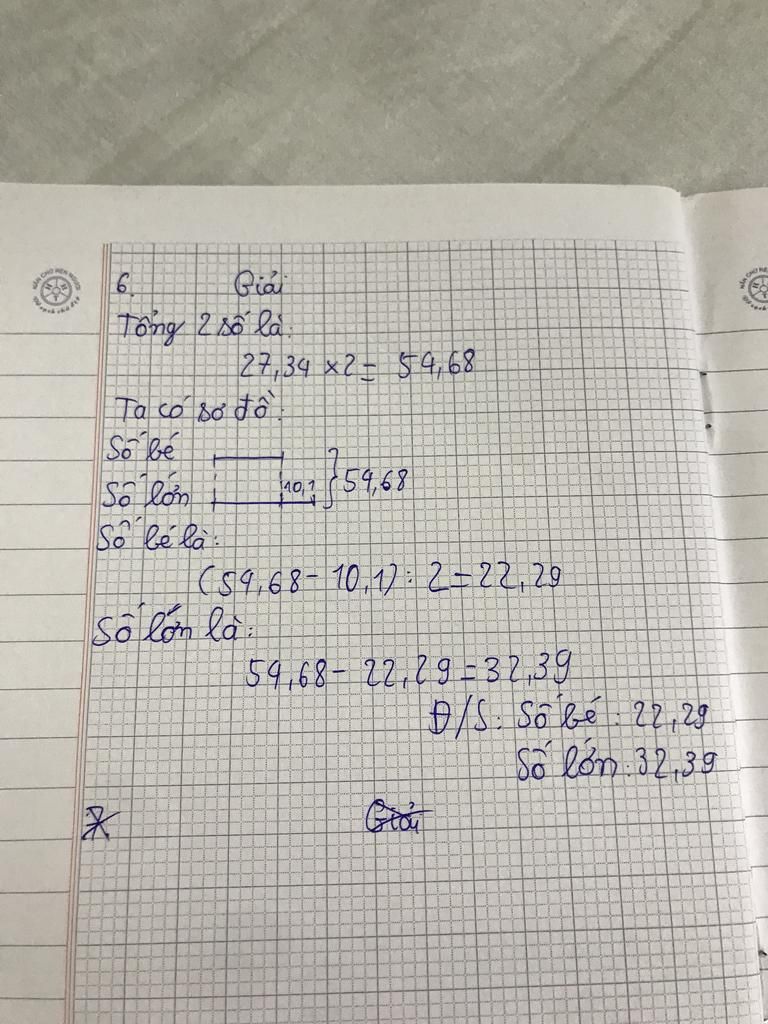 6. Giải
Tổng 2 số là:
27,34 × 2 = 54,68
Ta có sơ đồ:
Số bé
Số lớn 10,1 } 54,68
Số bé là:
(54,68 - 10,1) : 2 = 22,29
Số lớn là:
54,68 - 22,29 = 32,39
Đ/S: Số bé : 22,29
Số lớn : 32,39
7. Giải